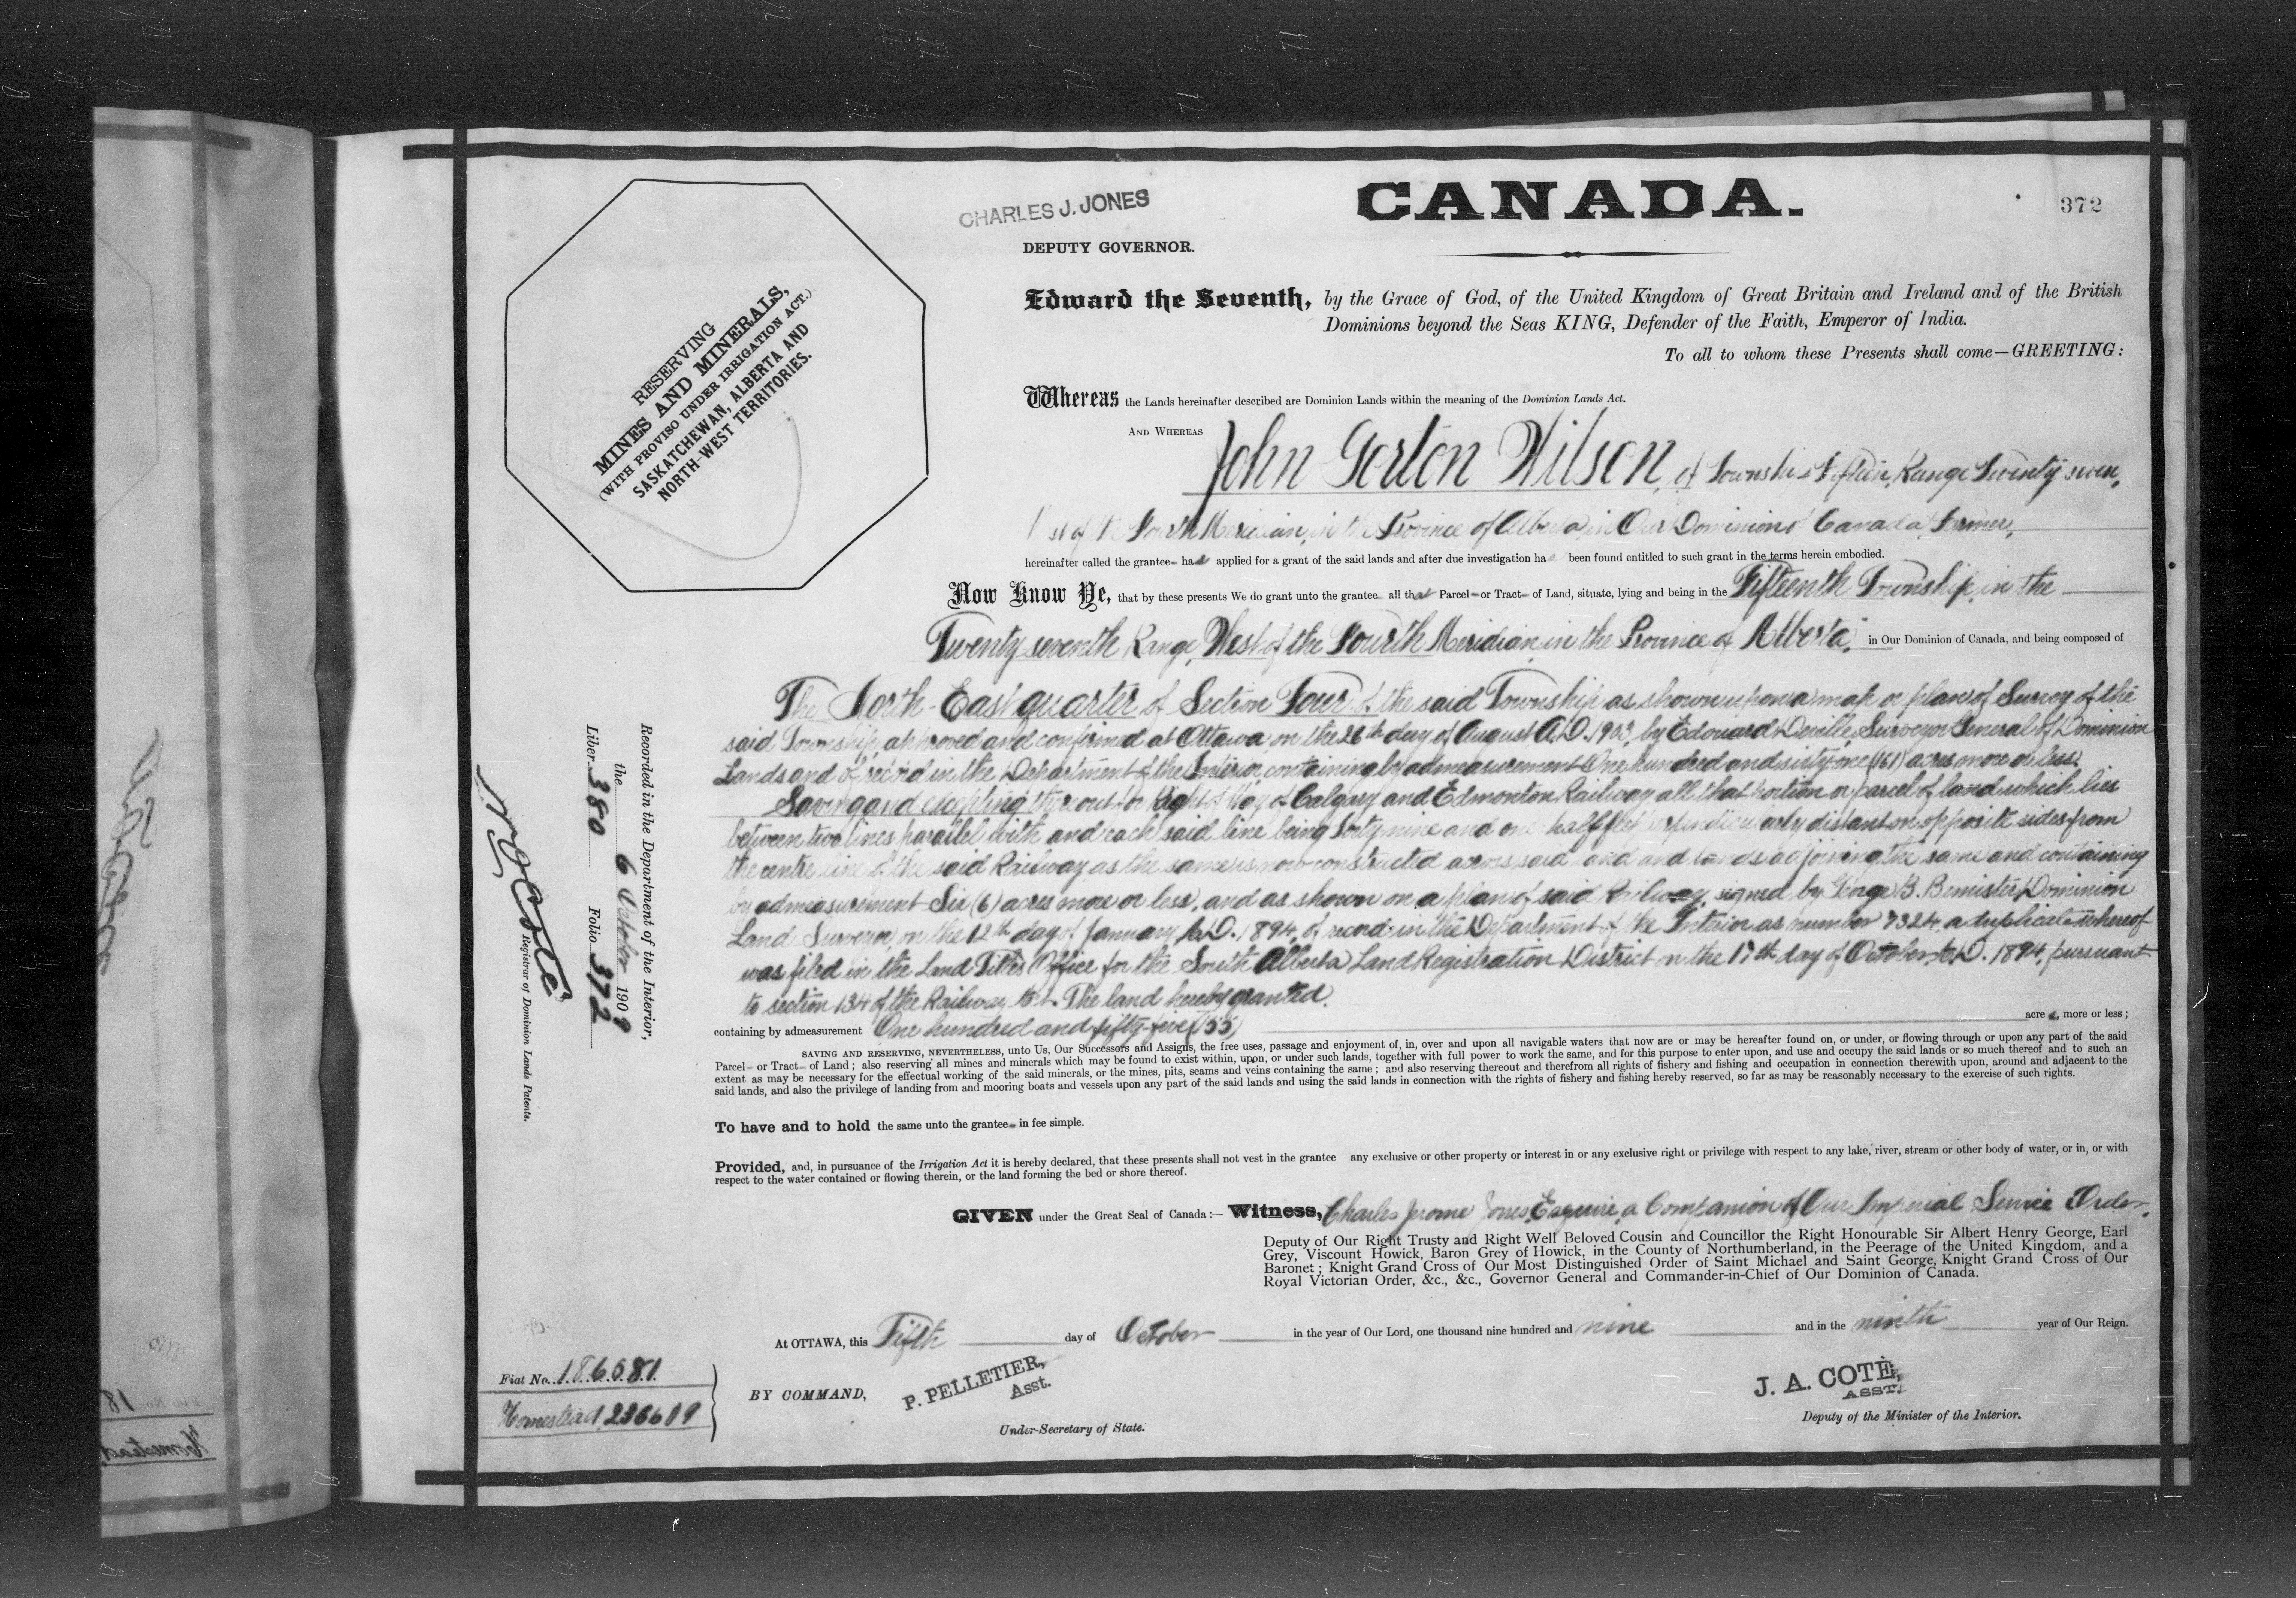 CANADA.
372
CHARLES J. JONES
DEPUTY GOVERNOR.
RESERVING
MINES AND MINERALS,
(WITH PROVISO UNDER IRRIGATION ACT.)
SASKATCHEWAN, ALBERTA AND
NORTH-WEST TERRITORIES.
Edward the Seventh, by the Grace of God, of the United Kingdom of Great Britain and Ireland and of the British
Dominions beyond the Seas KING, Defender of the Faith, Emperor of India.
To all to whom these Presents shall come—GREETING:
Whereas the Lands hereinafter described are Dominion Lands within the meaning of the Dominion Lands Act.
AND WHEREAS John Gorton Wilson, of Township Fifteen, Range Twenty seven,
West of the Fourth Meridian, in the Province of Alberta, in Our Dominion of Canada, Farmer,
hereinafter called the grantee has applied for a grant of the said lands and after due investigation has been found entitled to such grant in the terms herein embodied.
Now Know Ye, that by these presents We do grant unto the grantee all that Parcel or Tract of Land, situate, lying and being in the Fifteenth Township, in the
Twenty seventh Range, West of the Fourth Meridian, in the Province of Alberta, in Our Dominion of Canada, and being composed of
The North-East quarter of Section Four of the said Township as shown upon a map or plan of Survey of the
said Township, approved and confirmed at Ottawa on the 26th day of August A.D. 1903, by Edouard Deville, Surveyor General of Dominion
Lands and of record in the Department of the Interior, containing by admeasurement One hundred and sixty-one (161) acres more or less.
Saving and excepting thereout for Right of Way of Calgary and Edmonton Railway all that portion or parcel of land which lies
between two lines parallel with and each said line being forty nine and one half feet perpendicularly distant on opposite sides from
the centre line of the said Railway as the same is now constructed across said land and lands adjoining the same and containing
by admeasurement Six (6) acres more or less, and as shown on a plan of said Railway, signed by George B. Bemister, Dominion
Land Surveyor, on the 12th day of January A.D. 1894, of record in the Department of the Interior as number 7324, a duplicate whereof
was filed in the Land Titles Office for the South Alberta Land Registration District on the 17th day of October A.D. 1894, pursuant
to section 134 of the Railway Act. The land hereby granted.
containing by admeasurement One hundred and fifty-five (155) acres, more or less;
SAVING AND RESERVING, NEVERTHELESS, unto Us, Our Successors and Assigns, the free uses, passage and enjoyment of, in, over and upon all navigable waters that now are or may be hereafter found on, or under, or flowing through or upon any part of the said
Parcel or Tract of Land; also reserving all mines and minerals which may be found to exist within, upon, or under such lands, together with full power to work the same, and for this purpose to enter upon, and use and occupy the said lands or so much thereof and to such an
extent as may be necessary for the effectual working of the said minerals, or the mines, pits, seams and veins containing the same; and also reserving thereout and therefrom all rights of fishery and fishing and occupation in connection therewith upon, around and adjacent to the
said lands, and also the privilege of landing from and mooring boats and vessels upon any part of the said lands and using the said lands in connection with the rights of fishery and fishing hereby reserved, so far as may be reasonably necessary to the exercise of such rights.
To have and to hold the same unto the grantee in fee simple.
Provided, and, in pursuance of the Irrigation Act it is hereby declared, that these presents shall not vest in the grantee any exclusive or other property or interest in or any exclusive right or privilege with respect to any lake, river, stream or other body of water, or in, or with
respect to the water contained or flowing therein, or the land forming the bed or shore thereof.
GIVEN under the Great Seal of Canada:— Witness, Charles Jerome Jones, Esquire, a Companion of Our Imperial Service Order,
Deputy of Our Right Trusty and Right Well Beloved Cousin and Councillor the Right Honourable Sir Albert Henry George, Earl
Grey, Viscount Howick, Baron Grey of Howick, in the County of Northumberland, in the Peerage of the United Kingdom, and a
Baronet; Knight Grand Cross of Our Most Distinguished Order of Saint Michael and Saint George, Knight Grand Cross of Our
Royal Victorian Order, &c., &c., Governor General and Commander-in-Chief of Our Dominion of Canada.
At OTTAWA, this Fifth day of October in the year of Our Lord, one thousand nine hundred and nine and in the ninth year of Our Reign.
BY COMMAND,
P. PELLETIER,
Asst.
Under-Secretary of State.
J. A. COTÉ,
ASST.
Deputy of the Minister of the Interior.
Recorded in the Department of the Interior,
the 6 October 1909
Liber 380 Folio 372
Registrar of Dominion Lands Patents.
Fiat No. 186081
Homestead, 236619